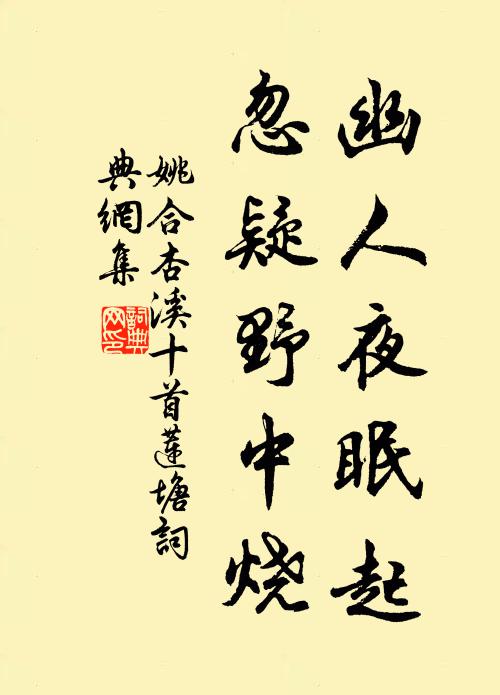 幽人夜眠起
忽疑野中烧
姚合杏溪十首莲塘詞
典網集
詞典
网印